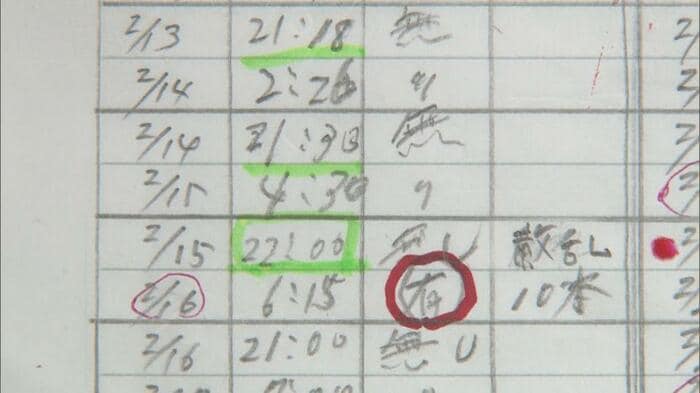 2/13 21:18 無
2/14 2:26 〃
2/14 21:30 無
2/15 4:30 〃
2/15 22:00 無し 散乱
2/16 6:15 有 10本
2/16 21:00 無し